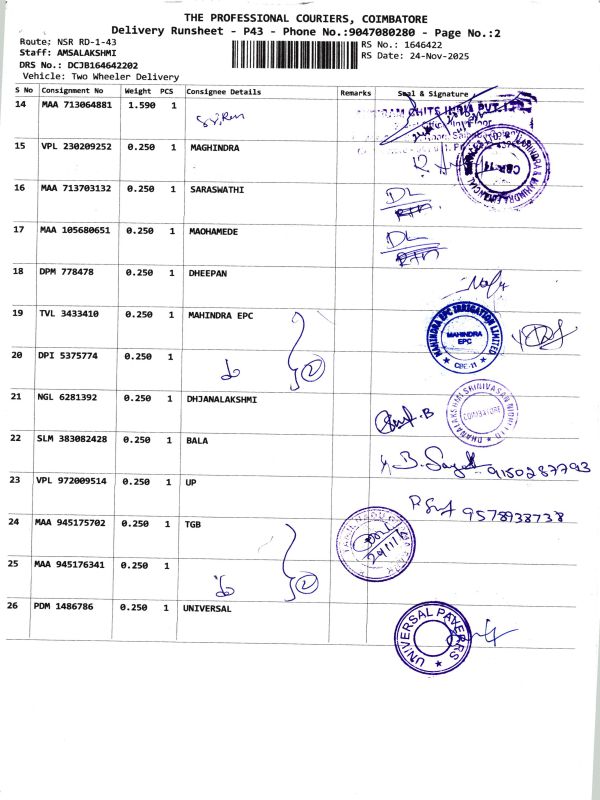 THE PROFESSIONAL COURIERS, COIMBATORE
Delivery Runsheet - P43 - Phone No.:9047080280 - Page No.:2
Route: NSR RD-1-43
RS No.: 1646422
Staff: AMSALAKSHMI
RS Date: 24-Nov-2025
DRS No.: DCJB164642202
Vehicle: Two Wheeler Delivery
S No Consignment No Weight PCS Consignee Details Remarks Seal & Signature
14 MAA 713064881 1.590 1
CHITS INDIA PVT. LTD
15 VPL 230209252 0.250 1 MAGHINDRA
CBE-11
16 MAA 713703132 0.250 1 SARASWATHI DL
RTN.
17 MAA 105680651 0.250 1 MAOHAMEDE DL
RTN
18 DPM 778478 0.250 1 DHEEPAN
19 TVL 3433410 0.250 1 MAHINDRA EPC
MAHINDRA EPC IRRIGATION LIMITED
MAHINDRA
EPC
* CBE-11 *
20 DPI 5375774 0.250 1 do 2
21 NGL 6281392 0.250 1 DHJANALAKSHMI
DHANALAKSHMI SRINIVASAN NIDHI LTD
COIMBATORE
22 SLM 383082428 0.250 1 BALA
9150287793
23 VPL 972009514 0.250 1 UP
9578938738
24 MAA 945175702 0.250 1 TGB
25 MAA 945176341 0.250 1 do 2
26 PDM 1486786 0.250 1 UNIVERSAL
UNIVERSAL PAVERS